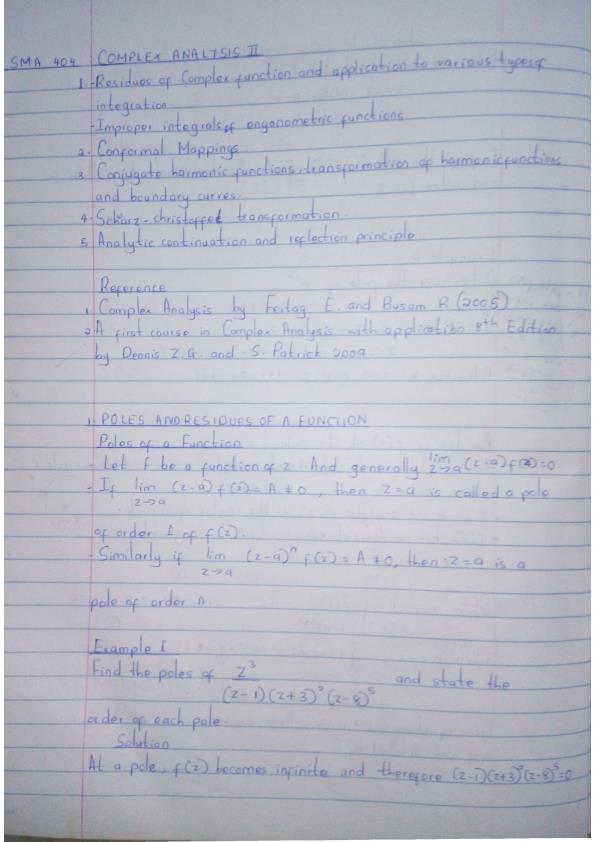 SMA 404 COMPLEX ANALYSIS II
1. -Residues of Complex function and application to various types of
integration
-Improper integrals of engonometric functions
2. Conformal Mappings
3. Conjugate harmonic functions, transformation of harmonic functions
and boundary curves.
4. Schwarz-christoffel transformation.
5. Analytic continuation and reflection principle
Reference
1. Complex Analysis by Feitag E. and Busam R (2005)
2. A first course in Complex Analysis with application 8th Edition
by Dennis Z.G. and S. Patrick 2009.
1. POLES AND RESIDUES OF A FUNCTION
Poles of a Function
- Let F be a function of z. And generally lim z→a (z-a) f(z)=0.
- If lim z→a (z-a) f(z) = A ≠ 0, then z=a is called a pole
of order 1 of f(z).
- Similarly if lim z→a (z-a)^n f(z) = A ≠ 0, then z=a is a
pole of order n.
Example 1
Find the poles of z^3 / (z-1)(z+3)^2(z-8)^5 and state the
order of each pole.
Solution
At a pole, f(z) becomes infinite and therefore (z-1)(z+3)^2(z-8)^5=0